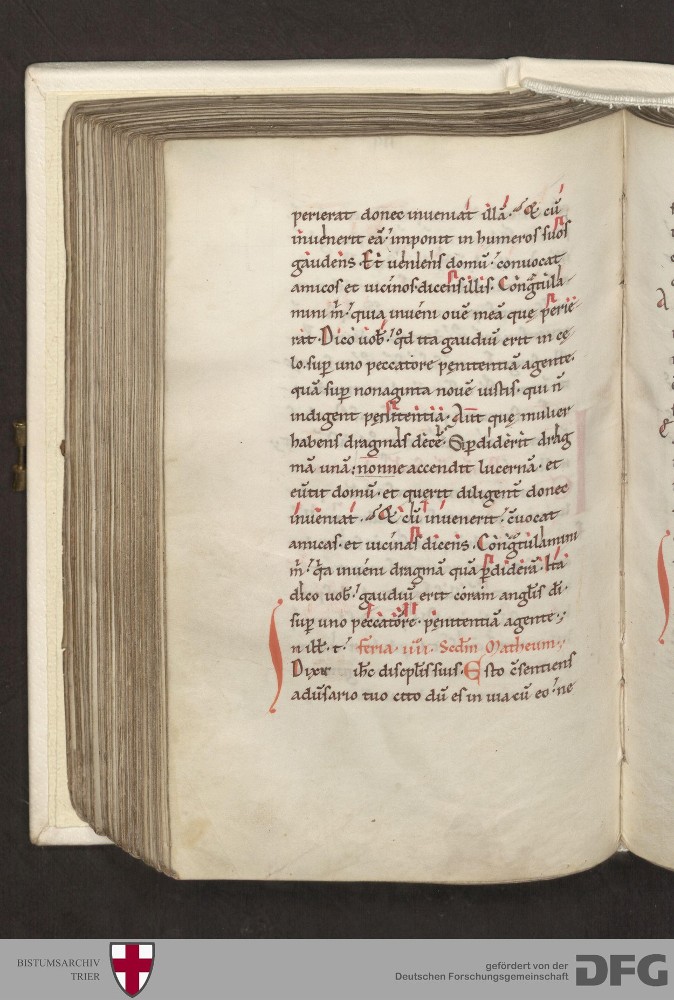 perierat donec inueniat illā. & cū
inuenerit eā. imponit in humeros suos
gaudens. Et ueniens domū. conuocat
amicos et uicinos. dicens illis. Congratula
mini m̄. quia inueni ouē meā que perie
rat. Dico uob̄. qd ita gaudiū erit in ce
lo. sup uno peccatore penitentiā agente.
quā sup nonaginta nouē iustis. qui n̄
indigent penitentia. Aut que mulier
habens dragmas decē. & si pdiderit drag
mā unā. nonne accendit lucernā. et
euūtit domū. et querit diligent donec
inueniat. & cū inuenerit. cuocat
amicas. et uicinas dicens. Congratulamini
m̄. qa inueni dragmā quā pdiderā. Ita
dico uob̄. gaudiū erit coram angl̄is dī.
sup uno peccatore. penitentiā agente.
n ill̄. t. feria. iiii. Scdm Matheum.
Dixit ihc discipl̄is suis. Esto c̄sentiens
adūsario tuo cito dū es in uia cū eo. ne
BISTUMSARCHIV
TRIER
gefördert von der
Deutschen Forschungsgemeinschaft
DFG